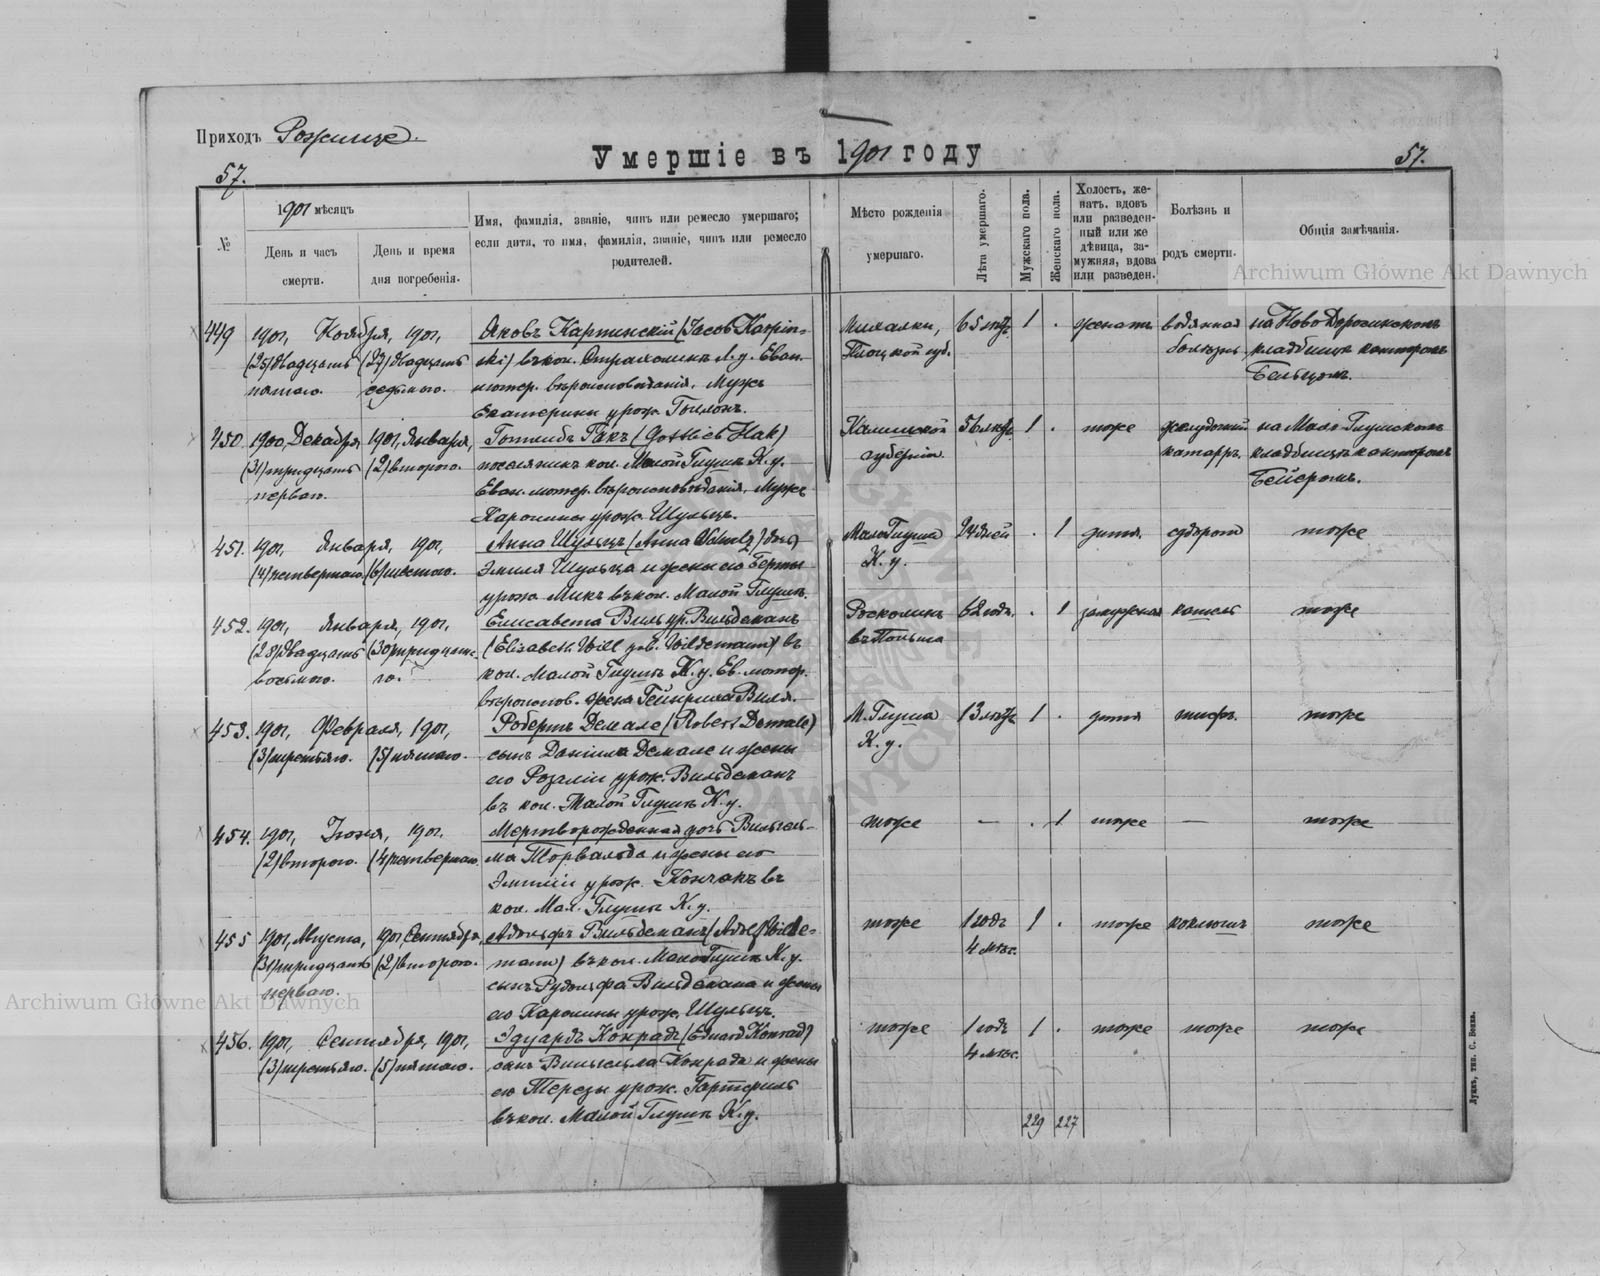 Приходъ Рожище.
Умершіе въ 1901 году
57.
57.
№
1901 мѣсяцъ
День и часъ смерти.
День и время дня погребенія.
Имя, фамилія, званіе, чинъ или ремесло умершаго;
если дитя, то имя, фамилія, званіе, чинъ или ремесло
родителей.
Мѣсто рожденія
умершаго.
Лѣта умершаго.
Мужскаго пола.
Женскаго пола.
Холостъ, же-
натъ, вдовъ
или разведен-
ный или же
дѣвица, за-
мужняя, вдова
или разведен.
Болѣзнь и
родъ смерти.
Общія замѣчанія.
449
1901, Ноября, 1901,
(25) двадцать (27) двадцать
пятаго. седьмого.
Яковъ Карпинскій (Jacob Karpin-
ski) въ кол. Л. у. Еван.
лютер. вѣроисповѣданія. Мужъ
Екатерины урож.
Плоцкой губ.
65 лѣтъ
1 .
женатъ
водянная
болѣзнь.
на Ново
кладбищѣ канторомъ
450.
1900, Декабря, 1901, Января,
(31) тридцать (2) второго.
перваго.
Готлибъ Гакъ (Gottlieb Hak)
поселянинъ кол. Малой Глушѣ К. у.
Еван. лютер. вѣроисповѣданія, Мужъ
Каролины урож. Шульцъ.
Калишской
губерніи
56 лѣтъ
1 .
тоже
желудочный
катарръ.
на Мало Глушскомъ
кладбищѣ канторомъ
Бейеромъ.
451.
1901, Января, 1901,
(4) четвертаго. (6) шестого.
Анна Шульцъ (Anna Schulz) дочь
Эмиля Шульца и жены его Берты
урож. Микъ въ кол. Малой Глушѣ.
Мало Глуша
К. у.
24 дней
. 1
дитя.
тоже
452.
1901, Января, 1901,
(28) двадцать (30) тридцата-
восьмого. го.
Елисавета Вилъ ур. Вильдеманъ
(Elisabeth Will geb. Wildemann) въ
кол. Малой Глушѣ К. у. Ев. лютер.
вѣроиспов. жена Гейнриха Виля.
въ Польша
62 годъ.
. 1
замужная
кашель
тоже
453.
1901, Февраля, 1901,
(3) третьяго. (5) пятаго.
Робертъ Демале (Robert Demale)
сынъ Даніила Демале и жены
его Розаліи урож. Вильдеманъ
въ кол. Малой Глушѣ К. у.
М. Глуша
К. у.
13 лѣтъ
1 .
дитя
тифъ.
тоже
454.
1901, Іюня, 1901.
(2) второго. (4) четвертаго.
Мертворожденная дочь Вильгель-
ма Торвальда и жены его
Эмиліи урож. Кончакъ въ
кол. Мал. Глушѣ К. у.
тоже
—
. 1
тоже
—
тоже
455
1901, Августа, 1901, Сентября,
(31) тридцать (2) второго.
перваго.
Адольфъ Вильдеманъ (Adolf Wilde-
mann) въ кол. Малой Глушѣ К. у.
сынъ Рудольфа Вильдемана и жены
его Каролины урож. Шульцъ.
тоже
1 годъ
4 мѣс.
1 .
тоже
коклюшъ
тоже
456.
1901, Сентября, 1901,
(3) третьяго. (5) пятаго.
Эдуардъ Конрадъ (Eduard Konrad)
сынъ Вильгельма Конрада и жены
его Терезы урож.
въ кол. Малой Глушѣ К. у.
тоже
1 годъ
4 мѣс.
1 .
тоже
тоже
тоже
229 227
Луцкъ, тип. С. Бенка.
Archiwum Główne Akt Dawnych
Archiwum Główne Akt Dawnych